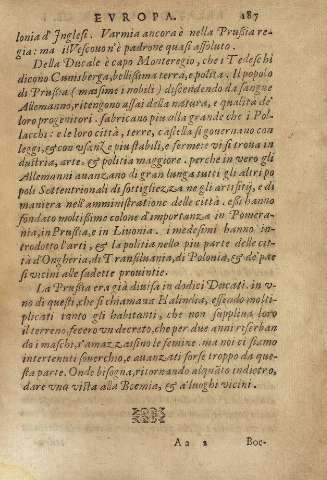 EVROPA. 187
lonia d'Inglesi. Varmia ancora è nella Prussia re-
gia: ma il Vescouo n'è padrone quasi assoluto.
Della Ducale è capo Monteregio, che i Tedeschi
dicono Cunisberga, bellissima terra, e polita. Il popolo
di Prussia (massime i nobili) discendendo da sangue
Allemanno, ritengono assai della natura, e qualità de'
loro progenitori. fabricano piu alla grande che i Po-
lacchi: e le loro città, terre, castella si gouernano con
leggi, & con vsanze piu stabili, e ferme: e vi si troua in
dustria, arte, & politia maggiore. perche in vero gli
Allemanni auanzano di gran lunga tutti gli altri po
poli Settentrionali di sottigliezza negli artificij, e di
maniera nell'amministratione delle città. essi hanno
fondato moltissime colonie d'importanza in Pomera-
nia, in Prussia, e in Liuonia. i medesimi hanno in-
trodotto l'arti, & la politia nella piu parte delle cit-
tà d'Ongheria, di Transiluania, di Polonia, & de' pae
si vicini alle sudette prouintie.
La Prussia era già diuisa in dodici Ducati. in v-
no di questi, che si chiamaua Halindia, essendo molti-
plicati tanto gli habitanti, che non suppliua loro
il terreno, fecero vn decreto, che per due anni riserban
do i maschi, s'amazzassino le femine. ma noi ci siamo
intertenuti souerchio, e auanzati forse troppo da que-
sta parte. Onde bisogna, ritornando alquāto indietro,
dare vna vista alla Boemia, & a' luoghi vicini.
Aa 2 Boe-